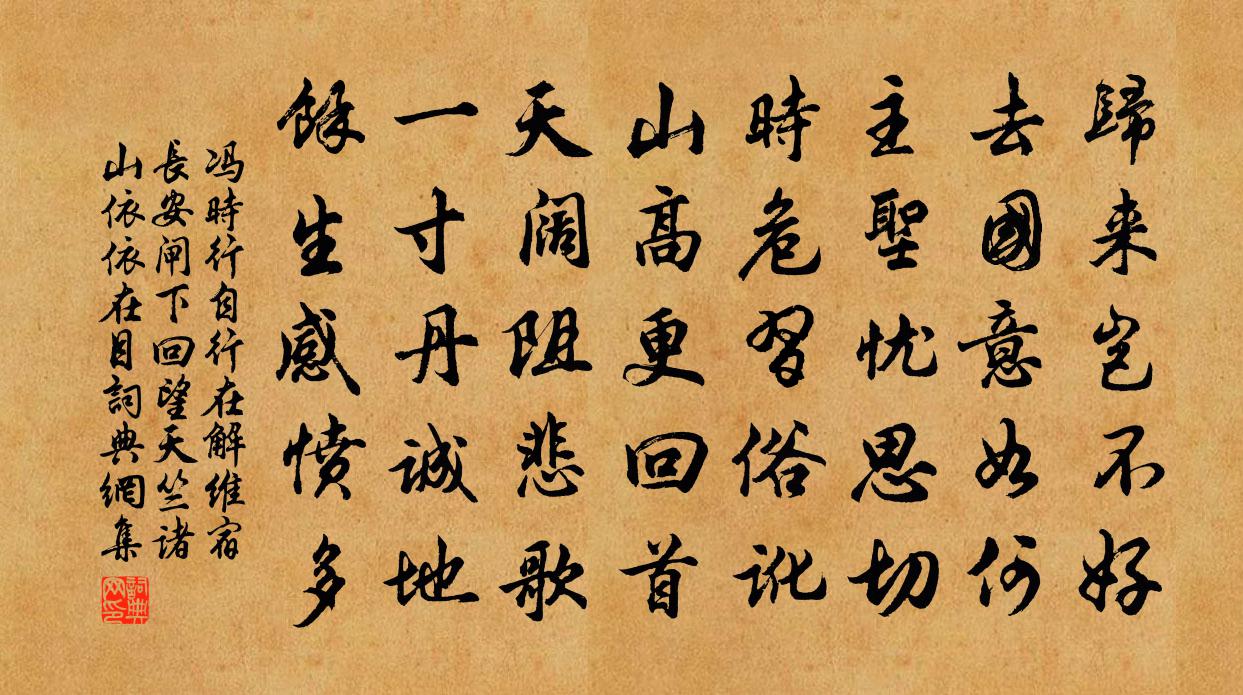 歸来岂不好
去國意如何
主聖忧思切
時危習俗訛
山高更回首
天阔阻悲歌
一寸丹誠地
餘生感憤多
冯時行自行在解維宿
長安闸下回望天竺诸
山依依在目詞典網集
詞典
网印